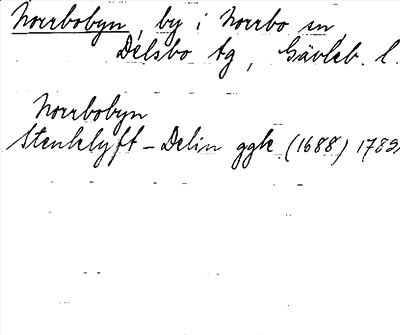 Norrbobyn, by i Norrbo sn,
Delsbo tg, Gävleb. l.
Norrbobyn
Stenklyft - Delin ggk (1688) 1789